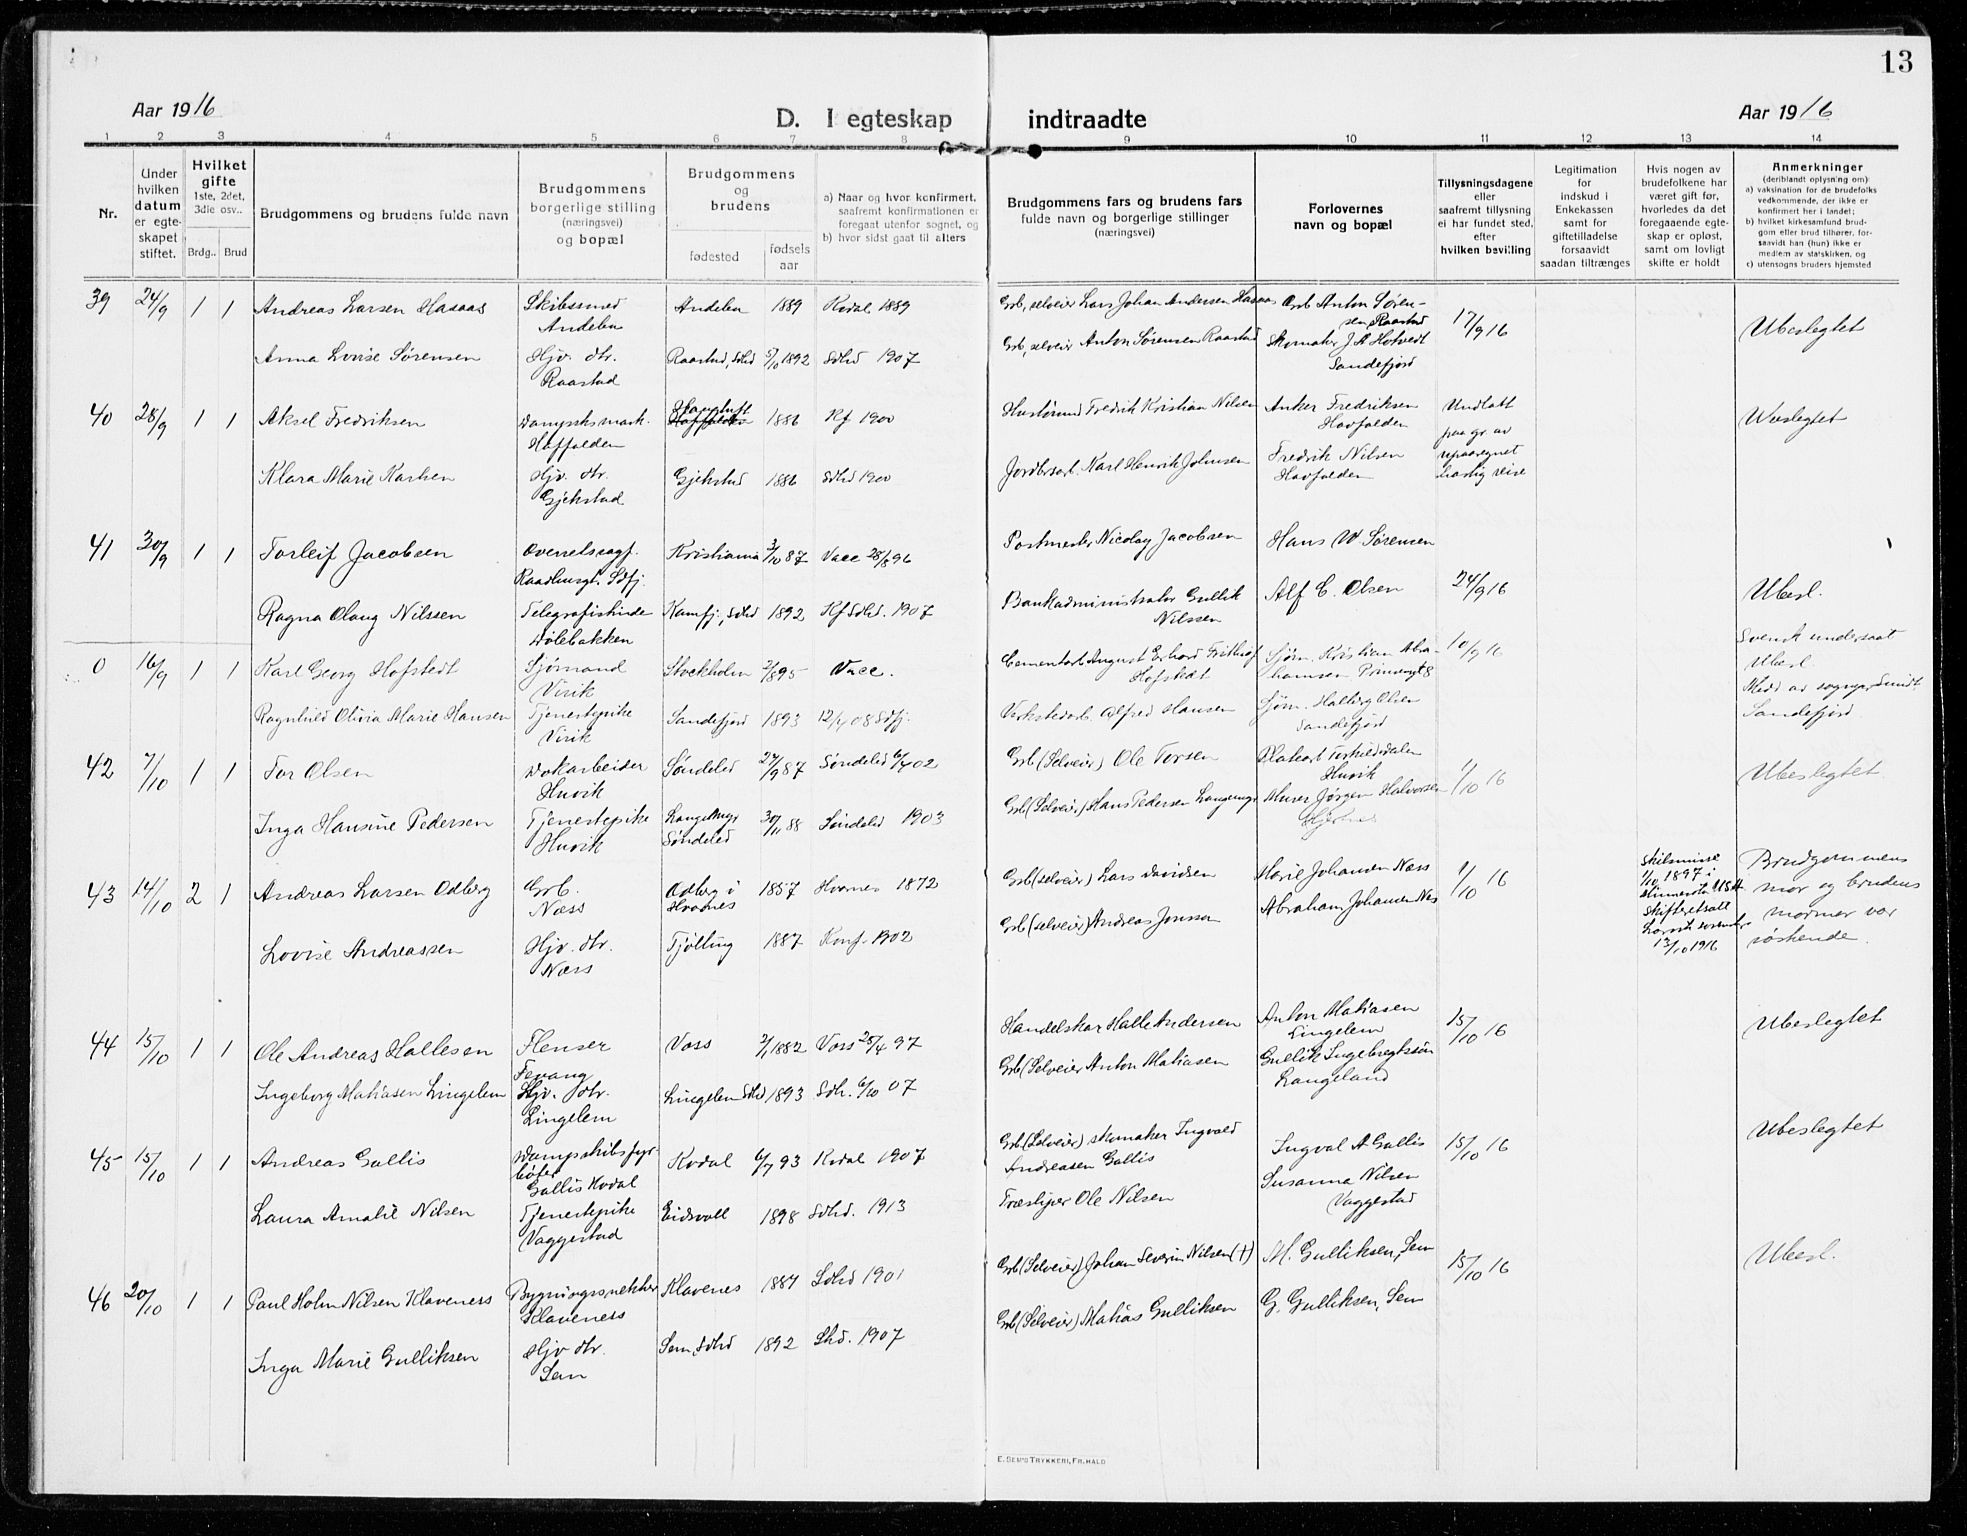 13
Aar 1916
D. I egteskap indtraadte
Aar 1916
1 2 3 4 5 6 7 8 9 10 11 12 13 14
Nr.
Under hvilken datum er egteskapet stiftet.
Hvilket gifte
1ste, 2det, 3die osv..
Brdg.. Brud
Brudgommens og brudens fulde navn
Brudgommens borgerlige stilling
(næringsvei)
og bopæl
Brudgommens og brudens
fødested
fødselsaar
a) Naar og hvor konfirmert, saafremt konfirmationen er foregaat utenfor sognet, og
b) hvor sidst gaat til alters
Brudgommens fars og brudens fars
fulde navn og borgerlige stillinger
(næringsvei)
Forlovernes
navn og bopæl
Tillysningsdagene
eller
saafremt tillysning
ei har fundet sted,
efter
hvilken bevilling
Legitimation
for
indskud i
Enkekassen
samt for
giftetilladelse
forsaavidt
saadan tiltrænges
Hvis nogen av
brudefolkene har
været gift før,
hvorledes da det
foregaaende egteskap er opløst,
samt om lovligt
skifte er holdt
Anmerkninger
(deriblandt oplysning om):
a) vaksination for de brudefolks vedkommende, der ikke er konfirmert her i landet;
b) hvilket kirkesamfund brudgom eller brud tilhører, forsaavidt han (hun) ikke er medlem av statskirken, og
c) utensogns bruders hjemsted
39 24/9 1 1 Andreas Larsen Hasaas Skibssmed Andebu Andebu 1889 Kodal 1889 Grb, selveier Lars Johan Andersen Hasaas Grb Anton Sørensen, Raastad 17/9 16 Ubeslegtet
Anna Lovise Sørensen Hjv. dtr. Raastad Raastad, Sdhd 5/10 1892 Sdhd 1907 Grb, selveier Anton Sørensen Raastad Skomaker J A Hotvedt Sandefjord
40 28/9 1 1 Aksel Fredriksen 1886 Kf 1900 Fredrik Kristian Nilsen Anker Fredriksen Havfalden Undlatt paa gr. av upaaregnet hastig reise Ubeslegtet
Klara Marie Karlsen Hjv. dtr. Gjekstad Gjekstad 1886 Sdhd 1900 Jordbrarb. Karl Henrik Johnsen Fredrik Nilsen Havfalden
41 30/9 1 1 Torleif Jacobsen Overretssagf. Raadhusgt. Sdfj. Kristiania 3/10 87 Vacc 28/8 96 Postmester Nicolay Jacobsen Hans W Sørensen 24/9 16 Ubesl.
Ragna Olaug Nilssen Telegrafistinde Dølebakken Kamfj., Sdhd 1892 Kf Sdhd. 1907 Bankadministrator Gullik Nilssen Alf C. Olsen
0 16/9 1 1 Karl Georg Hofstedt Sjømand Virik Stockholm 2/8 95 Vacc. Cementarb August Erhard Frithiof Hofstedt Sjøm. Kristian Abrahamsen Prinsengt 8 10/9 16 Svensk undersaat Ubesl.
Ragnhild Olivia Marie Hansen Tjenestepike Virik Sandefjord 1893 12/4 08 Sdfj. Verkstedarb. Alfred Hansen Sjøm. Halberg Olsen Sandefjord Medd av sognepr. Smidt Sandefjord.
42 7/10 1 1 Tor Olsen Dokarbeider Huvik Søndeled 27/9 87 Søndeled 6/4 02 Grb (Selveier) Ole Torsen Huvik 1/10 16 Ubeslegtet
Inga Hansine Pedersen Tjenestepike Huvik Langemyr Søndeled 30/11 88 Søndeled 1903 Grb (Selveier) Hans Pedersen Langemyr Murer Jørgen Halvorsen
43 14/10 2 1 Andreas Larsen Odberg Grb. Næss Odberg i Hvarnes 1857 Hvarnes 1872 Grb (selveier) Lars Davidsen Marie Johansen Næss 1/10 16 Skilsmisse 1/10 1897 i Minnesota USA Skifteretsatt 13/10 1916 Brudgommens mor og brudens mormor var søskende.
Lovise Andreassen Hjv. dtr. Næss Tjølling 1887 Konf. 1902 Grb (selveier) Andreas Jonsson Abraham Johansen Næs
44 15/10 1 1 Ole Andreas Hallesen Flenser Fevang Voss 2/1 1882 Voss 25/4 97 Handelskar Halle Andersen Anton Matiasen Lingelem 15/10 16 Ubeslegtet
Ingeborg Matiasen Lingelem Hjv. dtr. Lingelem Lingelem Sdhd 1893 Sdh. 6/10 07 Grb (Selveier Anton Matiasen Gullik Ingebregtsøn Langeland
45 15/10 1 1 Andreas Gallis Dampskibsfyrbøter Gallis Kodal Kodal 6/7 93 Kodal 1907 Grb (Selveier) skomaker Ingvald Andreasen Gallis Ingval A Gallis 15/10 16 Ubeslegtet
Laura Amalie Nilsen Tjenestepike Vaggestad Eidsvoll 1898 Sdhd. 1913 Træsliper Ole Nilsen Susanna Nilsen Vaggestad
46 20/10 1 1 Paul Holm Nilsen Klaveness Bygningssnekker Klaveness Klavenes 1887 Sdhd 1901 Grb (Selveier) Johan Severin Nilsen (†) M. Gulliksen, Sem 15/10 16 Ubesl.
Inga Marie Gulliksen Hjv dtr. Sem Sem, Sdhd 1892 Shd. 1907 Grb (Selveier) Matias Gulliksen G. Gulliksen, Sem
E. SEM'S TRYKKERI, FR.HALD